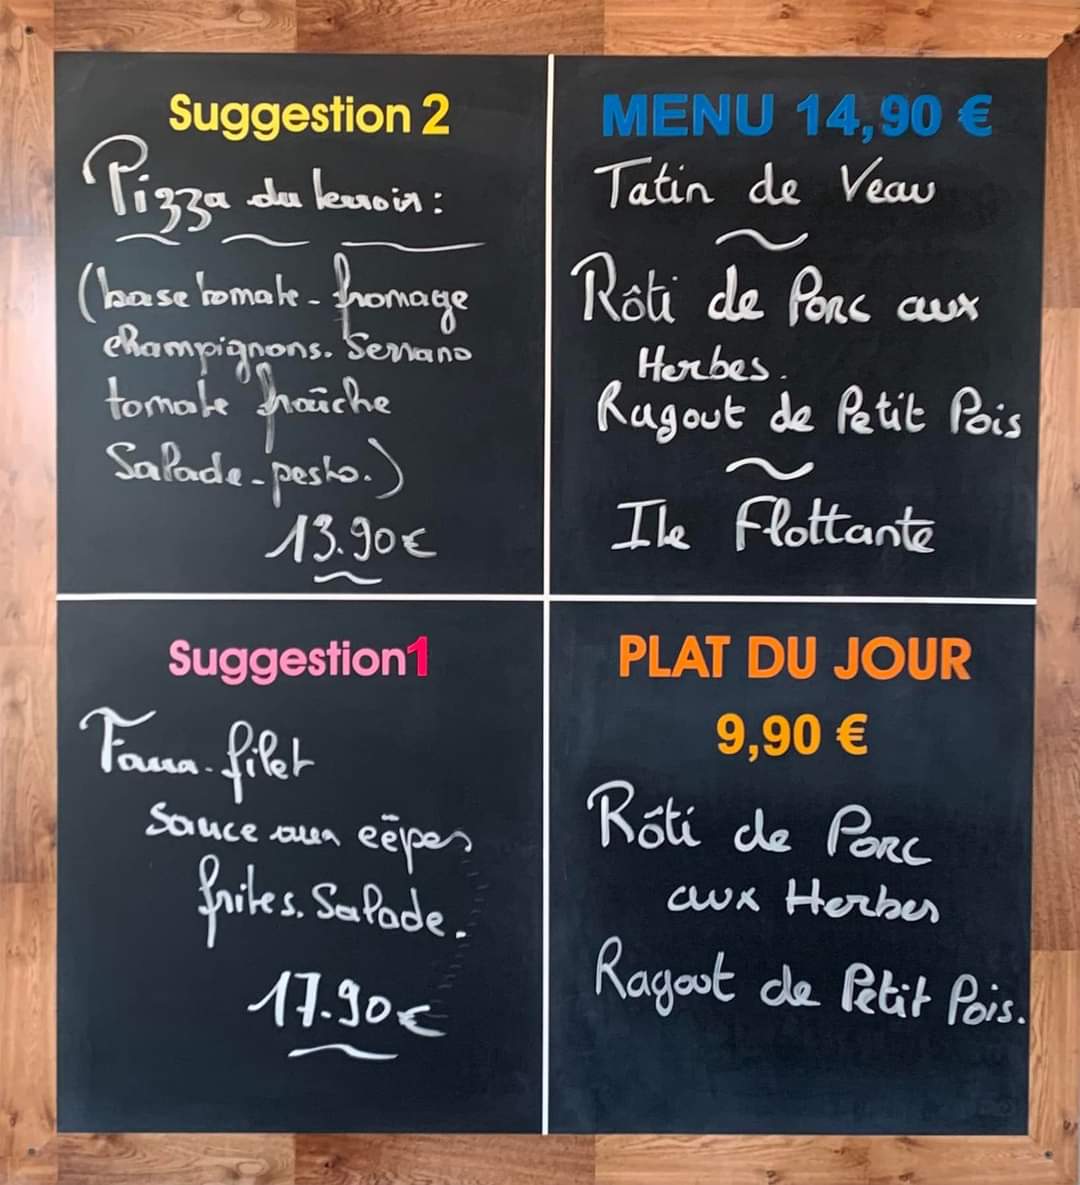 Suggestion 2
Pizza du terroir :
(base tomate - fromage
champignons. Serrano
tomate fraîche
Salade - pesto.)
13.90€
MENU 14,90 €
Tatin de Veau
~
Rôti de Porc aux
Herbes.
Ragout de Petit Pois
~
Ile Flottante
Suggestion1
Faux-filet
sauce aux cèpes
frites. Salade.
17.90€
PLAT DU JOUR
9,90 €
Rôti de Porc
aux Herbes
Ragout de Petit Pois.